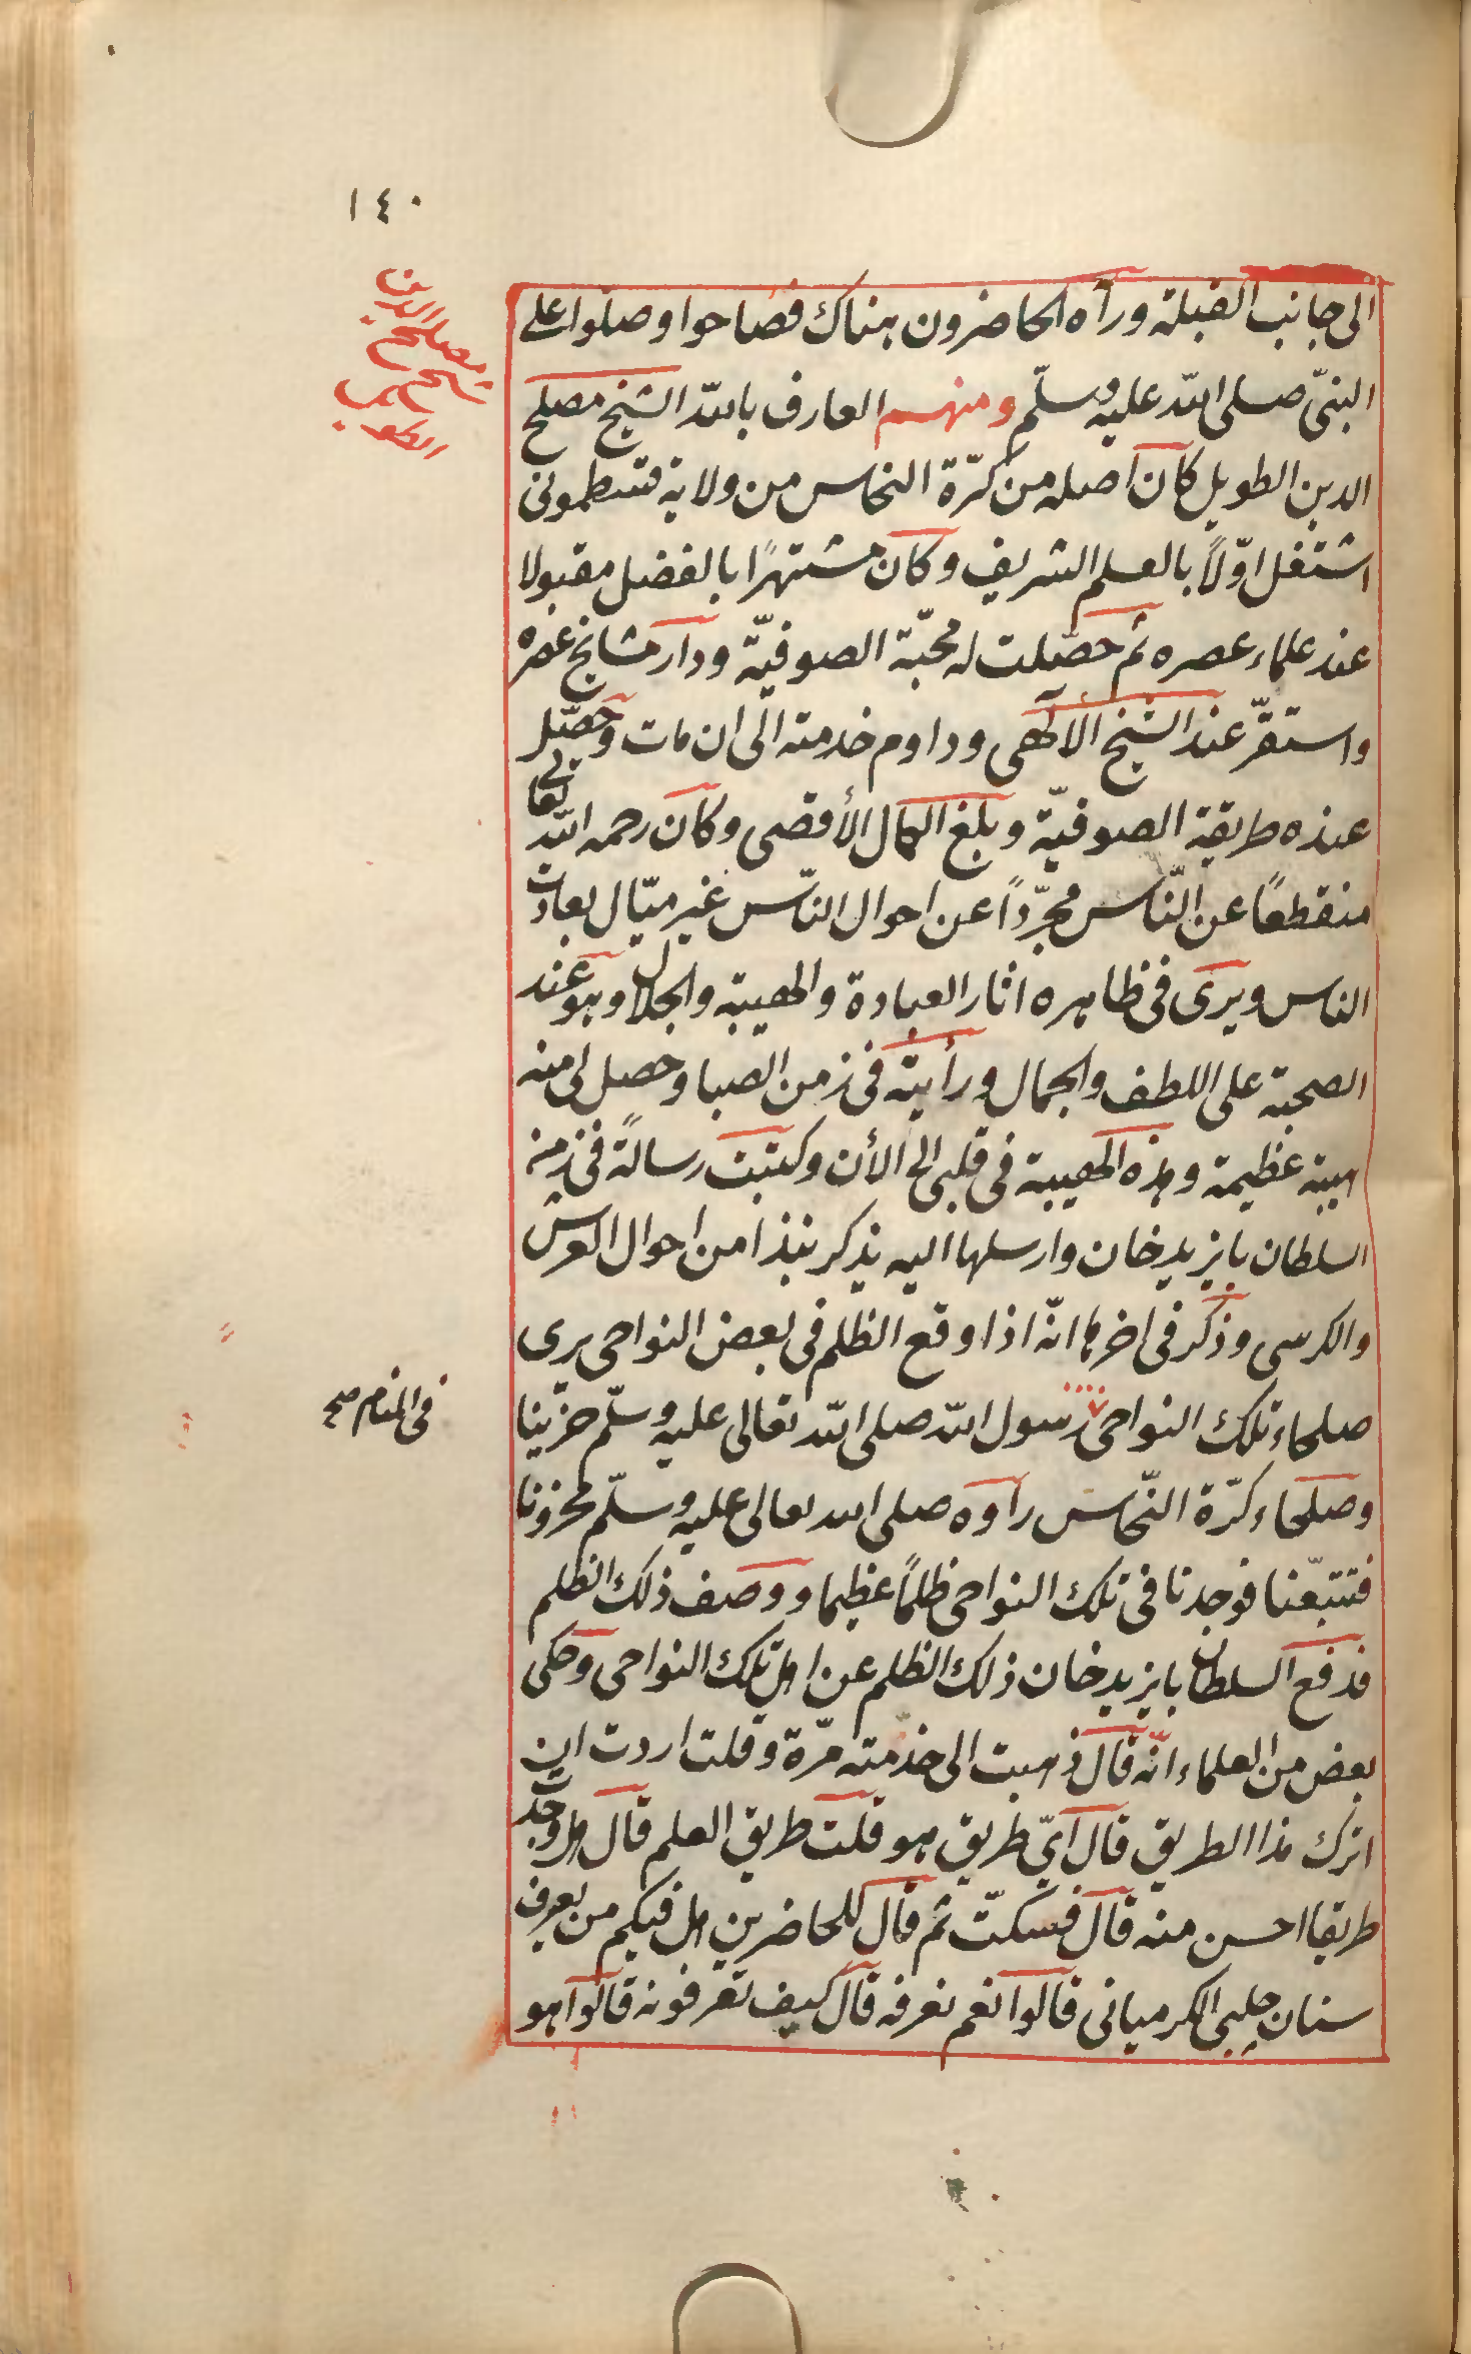 ١٤٠
الى جانب القبلة ورأه الحاضرون هناك فصاحوا وصلوا على
النبىّ صلى اللّه عليه وسلّم ومنهم العارف باللّه الشيخ مصلح
الدين الطويل كان اصله من كرّة النحاس من ولاية قسطمونى
اشتغل اوّلاً بالعلم الشريف وكان مشتهرًا بالفضل مقبولا
عند علماء عصره ثم حصّلت له محبّة الصوفيّة ودار مشايخ عصره
واستقرّ عند الشيخ الألٓهى وداوم خدمته الى ان مات وحصّل
عنده طريقة الصوفيّة وبلغ الكمال الأقصى وكان رحمه اللّه تعالى
منقطعًا عن النّاس مجرّدًا عن احوال النّاس غير ميّال بعادات
الناس ويرى فى ظاهره اثار العبادة والهيبة والجلال وهو عند
الصحبة على اللطف والجمال ورأيته فى زمن الصبا وحصل لى منه
هيبة عظيمة وهذه الهيبة فى قلبى الى الأن وكتبت رسالةً فى زمنه
السلطان بايزيد خان وارسلها اليه يذكر نبذا من احوال العرش
والكرسى وذكر فى اخرها انّه اذا وقع الظلم فى بعض النواحى يرى
صلحاء تلك النواحى رسول اللّه صلى اللّه تعالى عليه وسلّم حزينا
وصلحاء كرّة النّحاس رأوه صلى الله تعالى عليه وسلّم محزونا
فتتبّعنا فوجدنا فى تلك النواحى ظلمًا عظيما ووصف ذلك الظلم
فدفع السلطان بايزيد خان ذلك الظلم عن اهل تلك النواحى وحكى
بعض من العلماء انّه قال ذهبت الى خدمته مرّة وقلت اردت ان
اترك هذا الطريق قال اىّ طريق هو قلت طريق العلم قال هل وجدت
طريقا احسن منه قال فسكتّ ثم قال للحاضرين هل فيكم من يعرف
سنان چلبى الكرميانى قالوا نعم نعرفه قال كيف تعرفونه قالوا هو
مصلح الدين
شيخ
الطويل
فى المنام صح